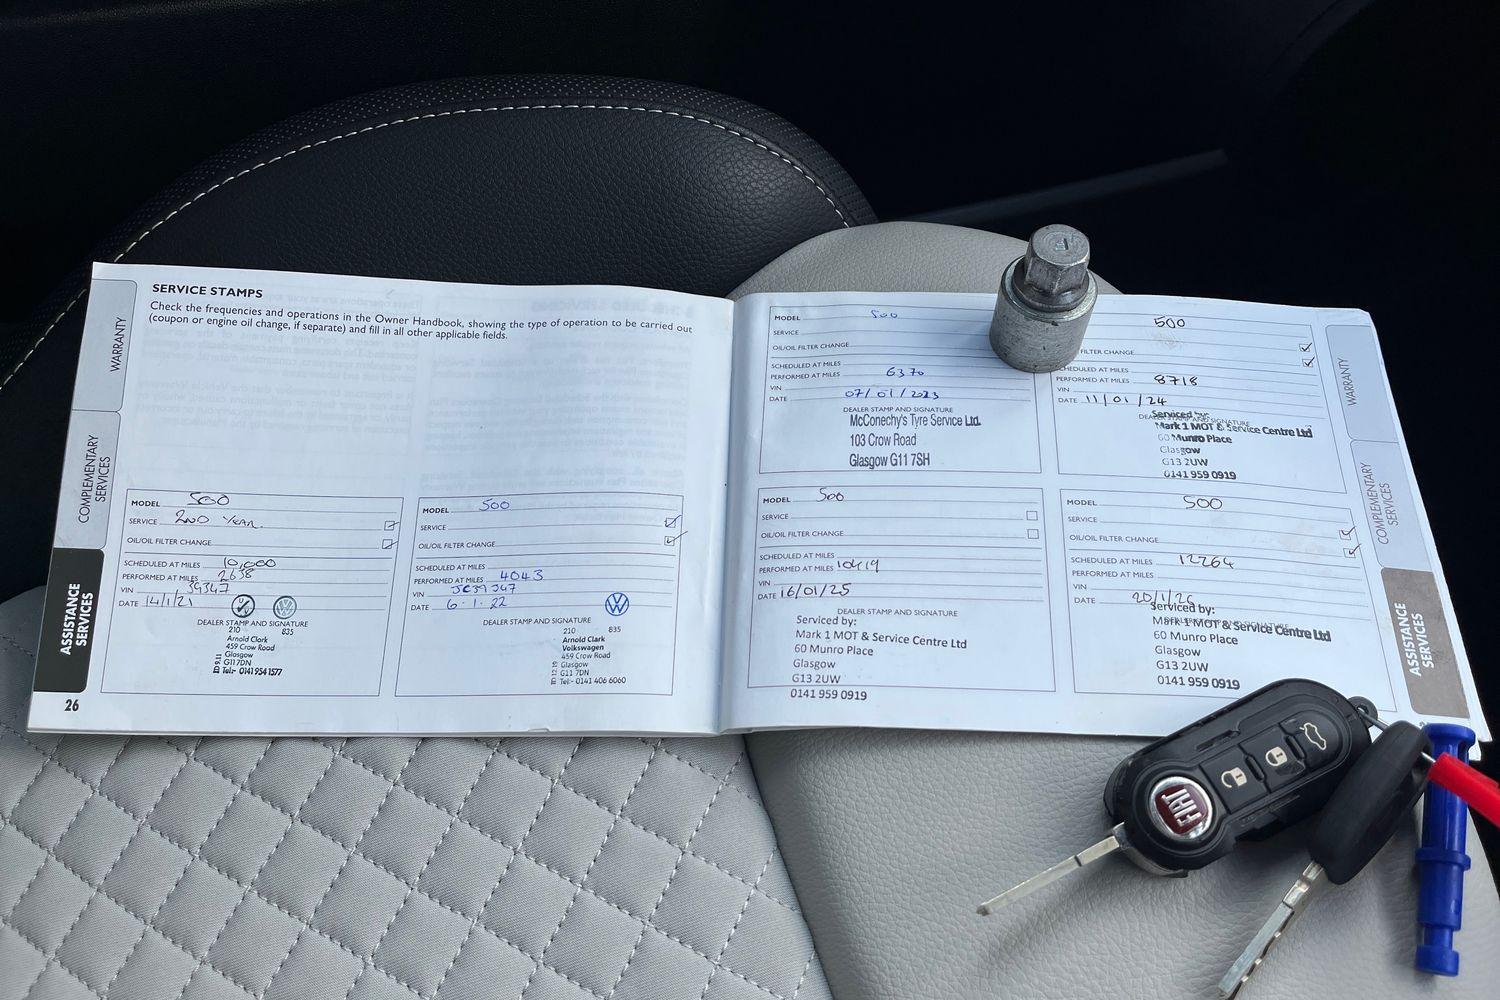 SERVICE STAMPS
Check the frequencies and operations in the Owner Handbook, showing the type of operation to be carried out
(coupon or engine oil change, if separate) and fill in all other applicable fields.
WARRANTY
COMPLEMENTARY
SERVICES
ASSISTANCE
SERVICES
MODEL 500
SERVICE 2ND YEAR.
OIL/OIL FILTER CHANGE
SCHEDULED AT MILES 10,000
PERFORMED AT MILES 2638
VIN
DATE 14/1/21
DEALER STAMP AND SIGNATURE
210 835
Arnold Clark
459 Crow Road
Glasgow
G11 7DN
Tel:- 0141 954 1577
26
MODEL 500
SERVICE
OIL/OIL FILTER CHANGE
SCHEDULED AT MILES
PERFORMED AT MILES 4043
VIN
DATE 6.1.22
DEALER STAMP AND SIGNATURE
210 835
Arnold Clark
Volkswagen
459 Crow Road
Glasgow
G11 7DN
Tel:- 0141 406 6060
MODEL 500
SERVICE
OIL/OIL FILTER CHANGE
SCHEDULED AT MILES
PERFORMED AT MILES 6370
VIN
DATE 07/01/2023
DEALER STAMP AND SIGNATURE
McConechy's Tyre Service Ltd.
103 Crow Road
Glasgow G11 7SH
500
FILTER CHANGE
SCHEDULED AT MILES
PERFORMED AT MILES 8718
VIN
DATE 11/01/24
DEALER STAMP AND SIGNATURE
Serviced by:
Mark 1 MOT & Service Centre Ltd
60 Munro Place
Glasgow
G13 2UW
0141 959 0919
MODEL 500
SERVICE
OIL/OIL FILTER CHANGE
SCHEDULED AT MILES
PERFORMED AT MILES 10419
VIN
DATE 16/01/25
DEALER STAMP AND SIGNATURE
Serviced by:
Mark 1 MOT & Service Centre Ltd
60 Munro Place
Glasgow
G13 2UW
0141 959 0919
MODEL 500
SERVICE
OIL/OIL FILTER CHANGE
SCHEDULED AT MILES 12264
PERFORMED AT MILES
VIN
DATE 20/1/26
Serviced by:
Mark 1 MOT & Service Centre Ltd
60 Munro Place
Glasgow
G13 2UW
0141 959 0919
WARRANTY
COMPLEMENTARY
SERVICES
ASSISTANCE
SERVICES
FIAT